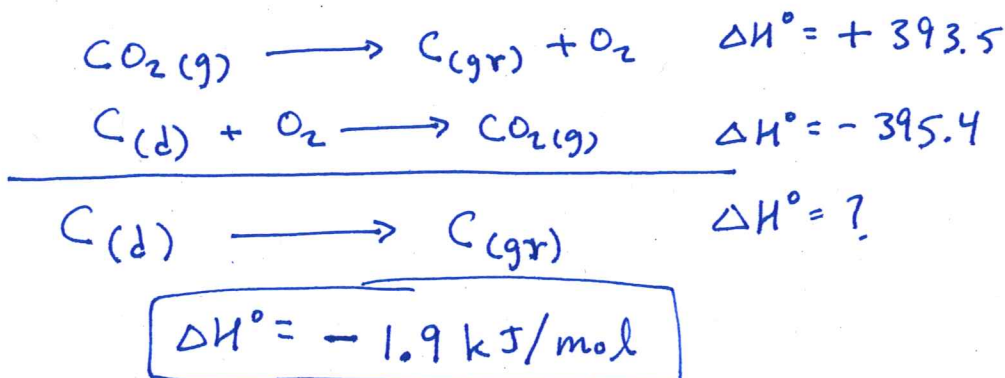 CO₂(g) ⟶ C(gr) + O₂ ΔH° = + 393.5
C(d) + O₂ ⟶ CO₂(g) ΔH° = - 395.4
C(d) ⟶ C(gr) ΔH° = ?
ΔH° = - 1.9 kJ/mol